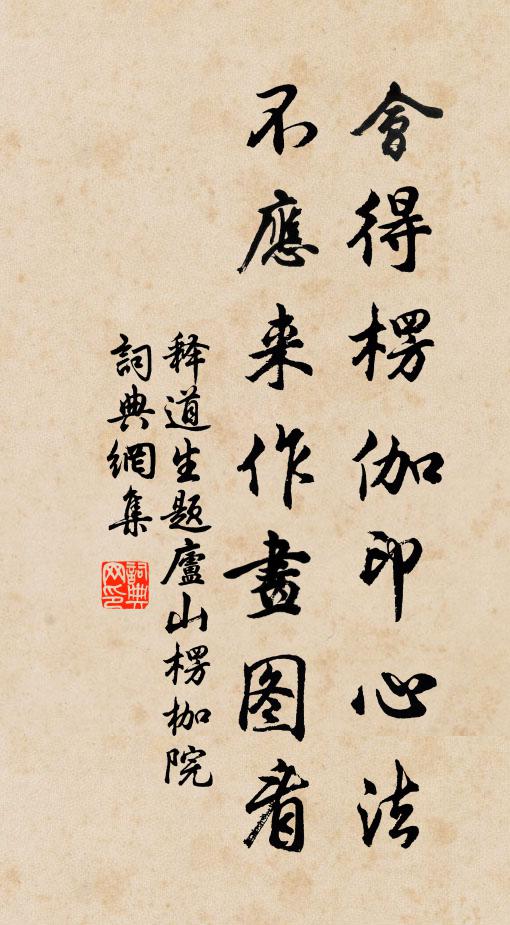 會得楞伽印心法
不應来作畫图看
释道生题廬山楞枷院
詞典網集
詞典网印